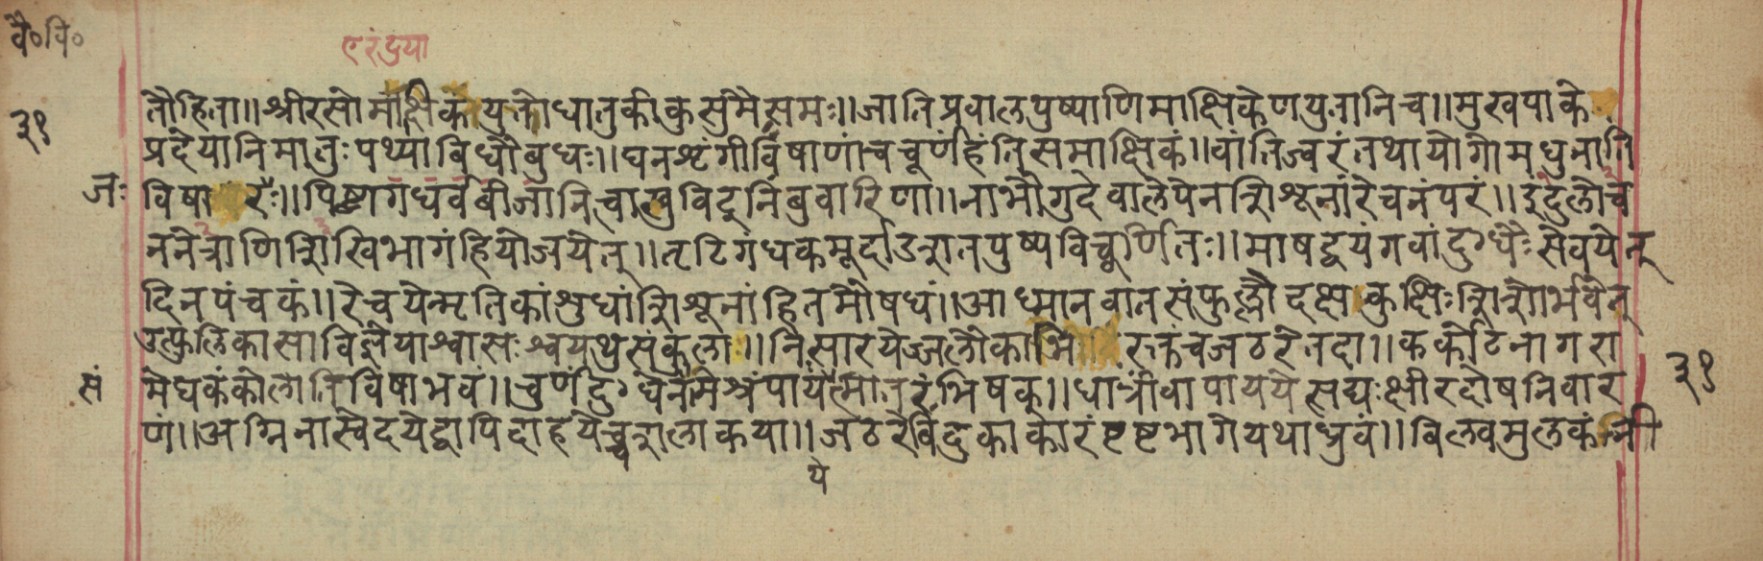 वै॰वि॰
एरंडया
तौहिता॥श्रीरसोमाक्षिकैयुक्तोधातुकीकुसुमैसमः॥जातिप्रवालपुष्याणिमाक्षिकेणयुतानिच॥मुखपाके
३१
प्रदेयानिमातुःपथ्याविधौबुधः॥घनशृंगीविषाणांचचूर्णंहंतिसमाक्षिकं॥वांतिज्वरंतथायोगोमधुनाति
जः
विषा रः॥पिष्टागंधर्वबीजानिचाखुविट्निंबुवारिणा॥नाभौगुदेवालेपेनशिशूनांरेचनंपरं॥
ननेत्राणिशिखिभागंहियोजयेत्॥तृटिगंधकमूर्दाउशतपुष्यविचूर्णितः॥माषद्वयंगवांदुग्धैःसेवयेत्
दिनपंचकं॥रेचयेन्मृतिकांशुधांशिशूनांहितमौषधं॥आध्मानवातसंफुल्लौदक्षकुक्षिःशिशोर्भवेत्
उत्फुल्लिकासाविज्ञेयाश्वासःश्वयथुसंकुला॥निसारयेज्जलौकाभि रक्तंचजठरेतदा॥कर्कोटिनागरा
सं
मेघकंकोलातिविषाभवं॥चुर्णंदुग्धेनमिश्रंपाययेत्मातरंभिषक्॥धात्रींवापाययेत्सद्यःक्षीरदोषनिवार
३१
णं॥अग्निनास्वेदयेद्वापिदाहयेच्चशलाकया॥जठरेविंदुकाकारंपृष्टभागेयथाध्रुवं॥विलवमुलकं
ये